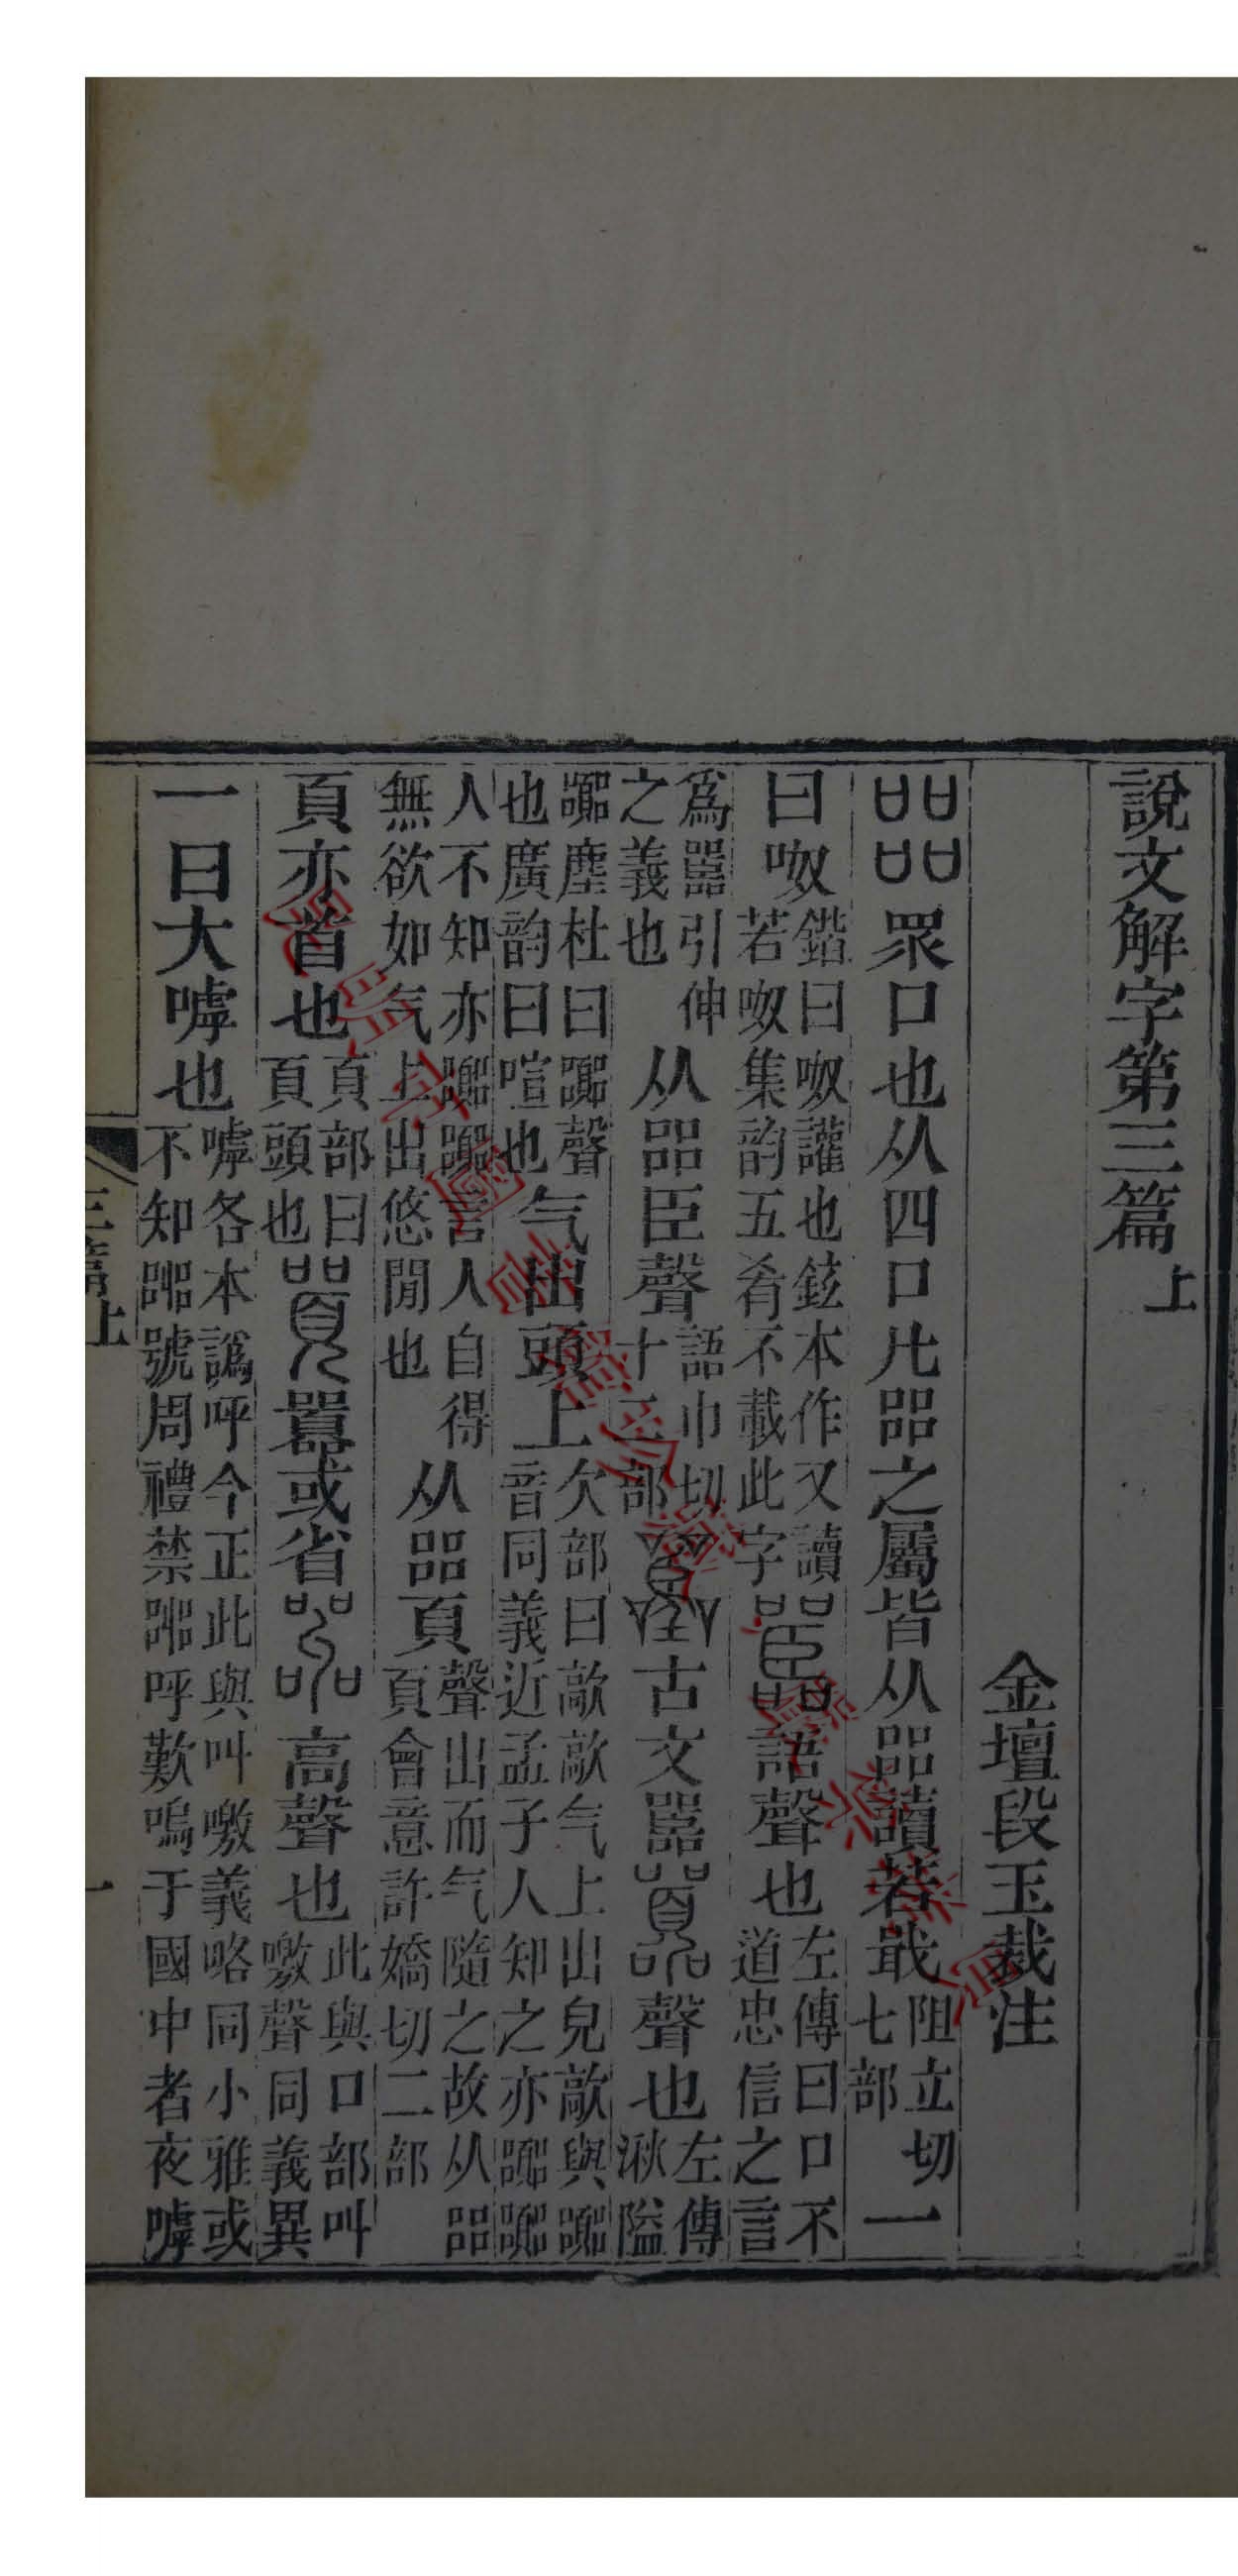 說文解字第三篇上
金壇段玉裁注
㗊眾口也从四口凡㗊之屬皆从㗊讀若戢阻立切七部一
曰呶鍇曰呶讙也鉉本作又讀若呶集韵五肴不載此字嚚語聲也左傳曰口不道忠信之言
爲嚚引伸之義也从㗊臣聲語巾切十二部古文嚚囂聲也左傳湫隘
囂塵杜曰囂聲也廣韵曰喧也气出頭上欠部曰歊歊气上出皃歊與囂音同義近孟子人知之亦囂囂
人不知亦囂囂言人自得無欲如气上出悠閒也从㗊頁聲出而气隨之故从㗊頁會意許嬌切二部
頁亦首也頁部曰頁頭也囂或省嘂高聲也此與口部叫噭聲同義異
一曰大嘑也嘑各本譌呼今正此與叫噭義略同小雅或不知嘂號周禮禁嘂呼歎嗚于國中者夜嘑
三篇上 一